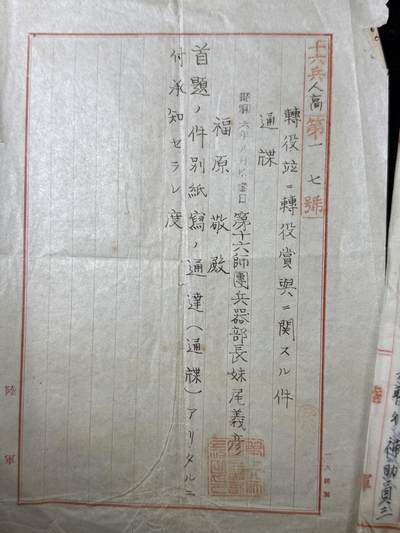 十六兵人高第一七號
轉役竝ニ轉役賞與ニ関スル件
通牒
第十六師團兵器部長妹尾義彦
福原敬殿
首題ノ件別紙寫ノ通達(通牒)アリタルニ
付承知セラレ度
陸軍